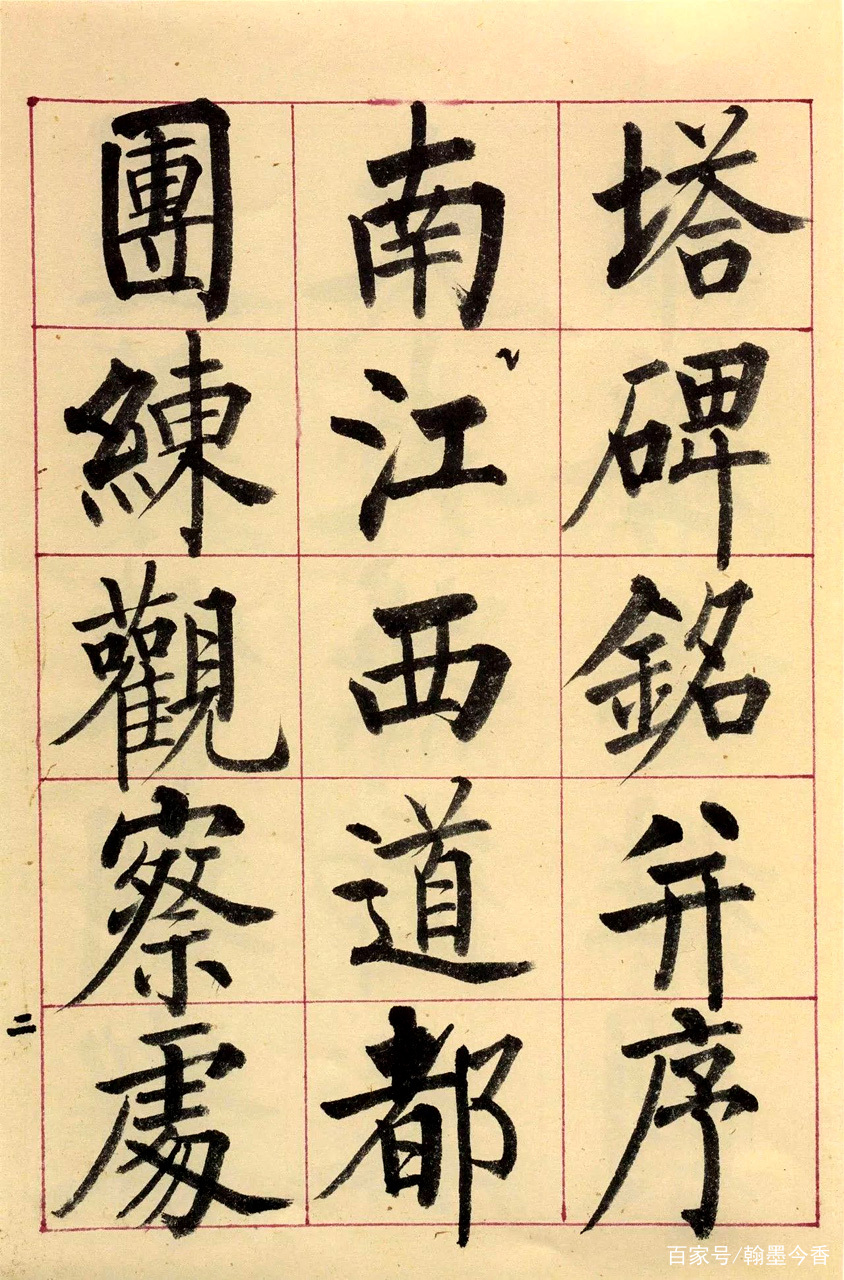 塔碑銘并序
南江西道都
團練觀察處
二
百家号/翰墨今香